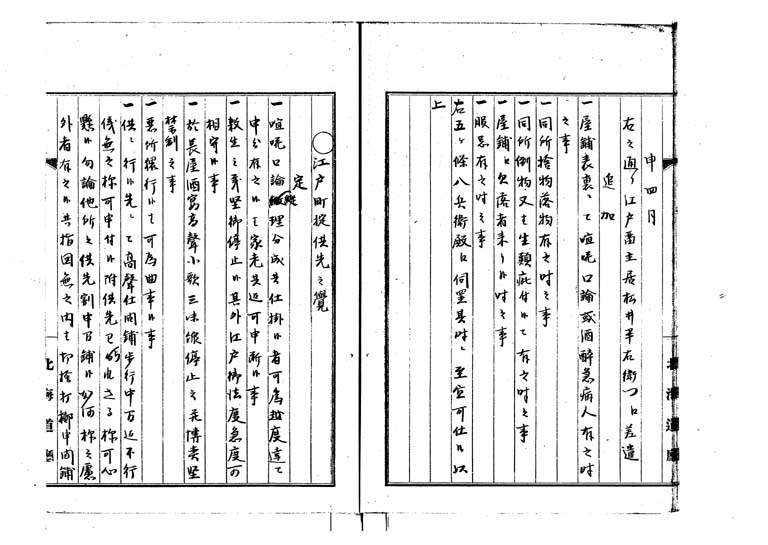 申四月
右之通り江戸番主居松井半右衛門江差遣
追加
一屋鋪表裏ニ而喧嘩口論或酒酔急病人有之時
之事
一同所捨物落物有之時之事
一同所倒物又は生類疵付ニ而有之時之事
一屋鋪江欠落者来り候時之事
一服忌有之時之事
右五ヶ條八兵衛殿江伺置其時ニ至宜可仕候以
上
北海道廳
○江戸町掟供先之覺
定
一喧嘩口論縦理分成共仕掛候者可為越度違而
申分有之候而家老共迄可申断候事
一殺生之義堅御停止候其外江戸御法度急度可
相守候事
一於長屋酒宴高聲小歌三味線停止之并博奕堅
禁制之事
一悪所猥行候而可為曲事候事
一供ニ行候先ニ而高聲仕間鋪歩行申万込不行
儀無之様可申付候附供先
懸候勿論他所之供先割申間鋪候如何様之慮
外者有之候共指図無之内は切捨打擲申間鋪
北海道廳